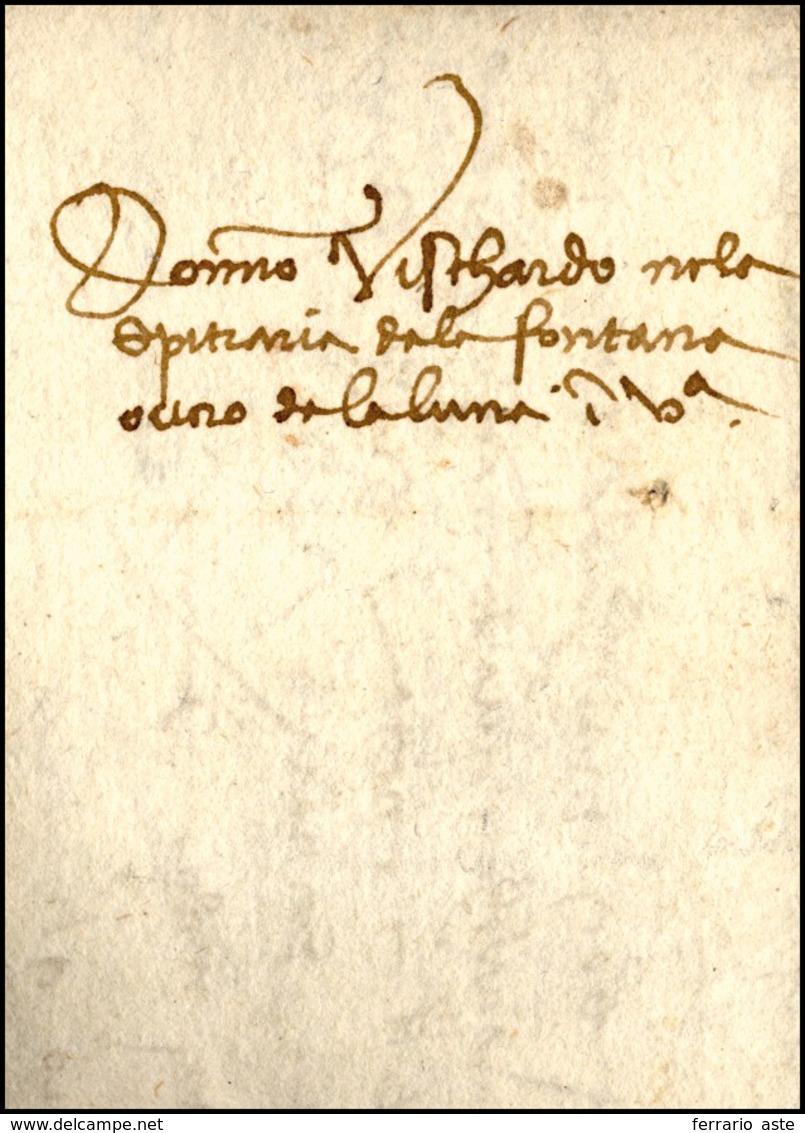 Vischardo nele
Spitiaria dela fontana
overo de la luna ī Vᵃ.
www.delcampe.net
ferrario aste